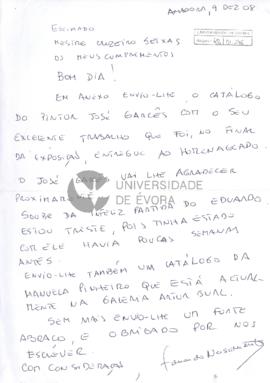 AMADORA, 9 DEZ 08
ESTIMADO
MESTRE CRUZEIRO SEIXAS
OS MEUS CUMPRIMENTOS
BOM DIA!
EM ANEXO ENVIO-LHE O CATÁLOGO
DO PINTOR JOSÉ GARCÊS COM O SEU
EXCELENTE TRABALHO QUE FOI, NO FINAL
DA EXPOSIÇÃO, ENTREGUE AO HOMENAGEADO.
O JOSÉ GARCÊS VAI LHE AGRADECER
UNIVERSIDADE
DE ÉVORA
SOUBE DA INFELIZ PARTIDA DO EDUARDO.
ESTOU TRISTE, POIS TINHA ESTADO
COM ELE HAVIA POUCAS SEMANAS
ANTES.
ENVIO-LHE TAMBÉM UM CATÁLOGO DA
MANUELA PINHEIRO QUE ESTÁ ACTUAL-
MENTE NA GALERIA ARTUR BUAL.
SEM MAIS ENVIO-LHE UM FORTE
ABRAÇO, E OBRIGADO POR NOS
ESCREVER.
COM CONSIDERAÇÃO